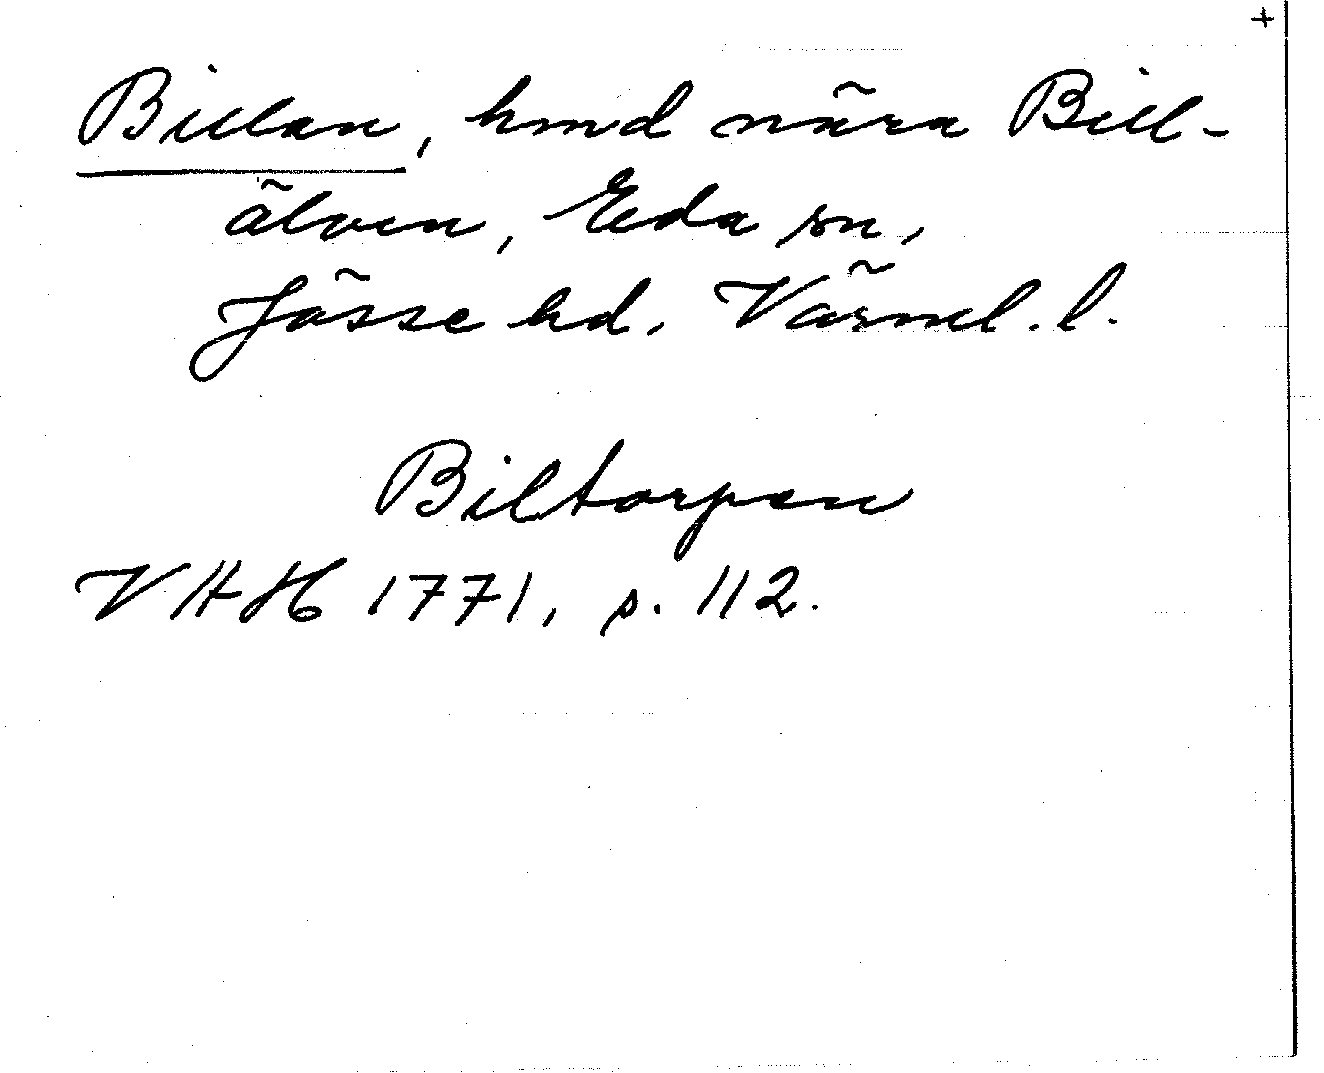 +
Billan, hmd nära Bill-
älven, Eda sn,
Jösse hd. Värml. l.
Biltorpen
VHH 1771, s. 112.